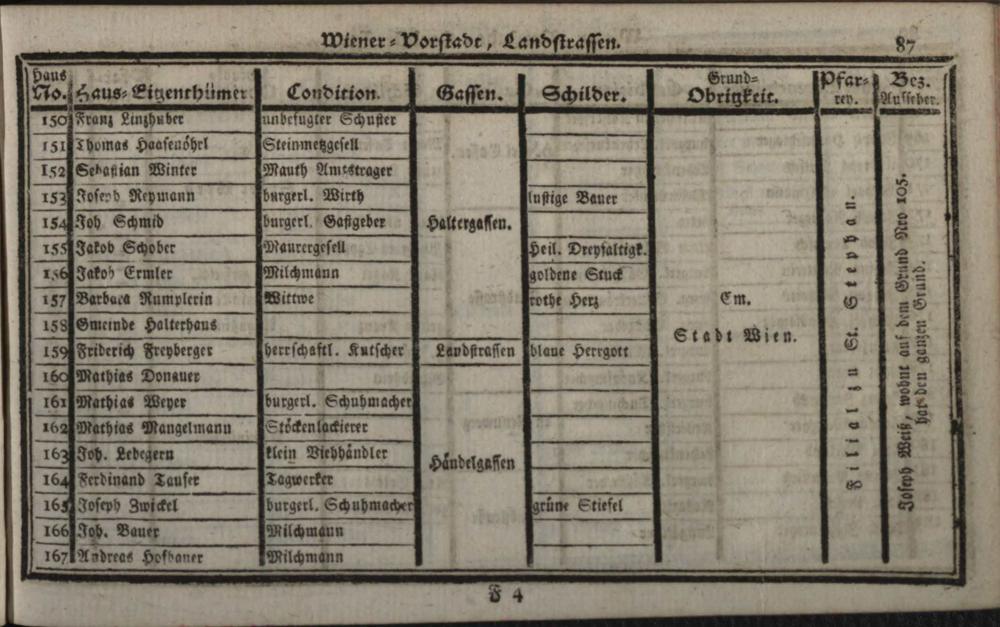 Wiener-Vorstadt, Landstrassen. 87
Haus No. Haus-Eigenthümer Condition. Gassen. Schilder. Grund-Obrigkeit. Pfarrey. Bez. Aufseher.
150 Franz Linzhuber unbefugter Schuster
151 Thomas Haasenöhrl Steinmetzgesell
152 Sebastian Winter Mauth Amtstrager
153 Joseph Reymann burgerl. Wirth lustige Bauer
154 Joh Schmid burgerl. Gastgeber Haltergassen.
155 Jakob Schober Maurergesell Heil. Dreyfaltigk.
156 Jakob Ermler Milchmann goldene Stuck
157 Barbara Rumplerin Wittwe rothe Herz Em.
158 Gmeinde Halterhaus Stadt Wien.
159 Friderich Freyberger herrschaftl. Kutscher Landstrassen blaue Herrgott
160 Mathias Donauer
161 Mathias Weyer burgerl. Schuhmacher
162 Mathias Mangelmann Stöckenlackierer
163 Joh. Ledegern klein Viehhändler Händelgassen
164 Ferdinand Taufer Tagwerker
165 Joseph Zwickel burgerl. Schuhmacher grüne Stiefel
166 Joh. Bauer Milchmann
167 Andreas Hofbauer Milchmann
Filial zu St. Stephan.
Joseph Weiß, wohnt auf dem Grund Nro 105.
hat den ganzen Grund.
F 4